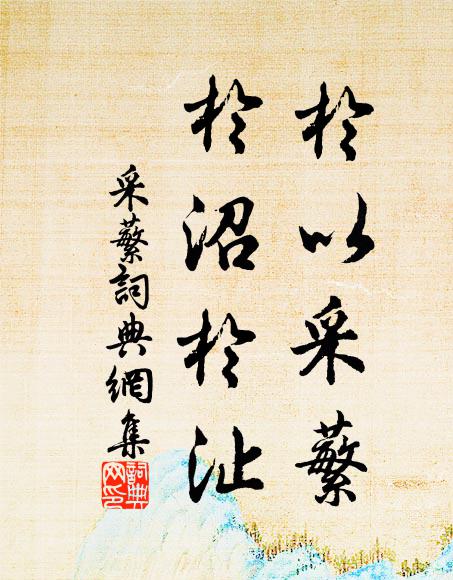 於以采蘩
於沼於沚
采蘩詞典網集
詞典
网印